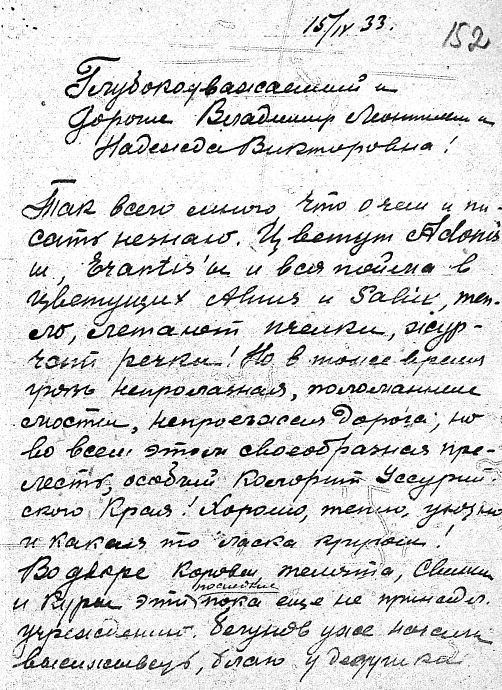 15/IV 33.
152
Глубокоуважаемый и
дорогие Владимир Леонтьевич и
Надежда Викторовна!
Так всего много что о чем и пи-
сать незнаю. Цветут Adonis'
ы, Erantis'ы и вся пойма в
цветущих Alnus и Salix, теп-
ло, летают пчелки, жур-
чат речки! Но в тоже время
грязь непролазная, поломанные
мосты, непроезжая дорога, но
во всем этом своеобразная пре-
лесть, особый колорит Уссурий-
ского Края! Хорошо, тепло, уютно
и какая то ласка кругом!
Во дворе коровы, телята, свиньи
и куры эти последние пока еще не принадл.
учреждению.